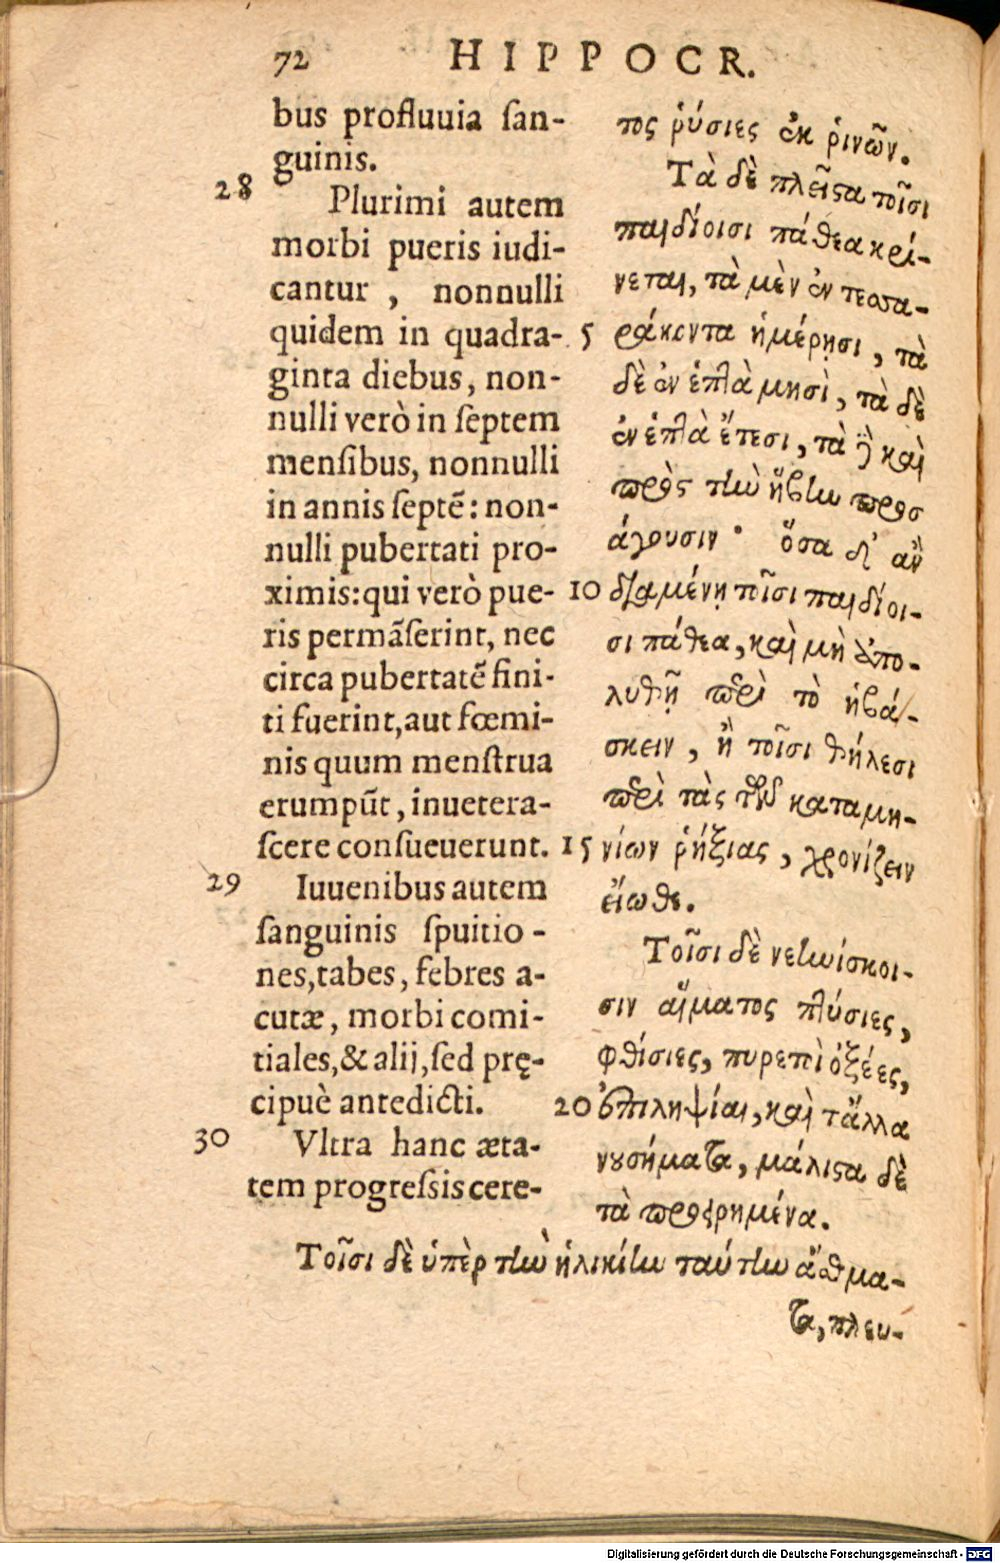 72 HIPPOCR.
bus profluuia ſan-
guinis.
28
Plurimi autem
morbi pueris iudi-
cantur , nonnulli
quidem in quadra-
ginta diebus, non-
nulli verò in ſeptem
menſibus, nonnulli
in annis ſeptẽ: non-
nulli pubertati pro-
ximis: qui verò pue-
ris permãſerint, nec
circa pubertatẽ fini-
ti fuerint, aut fœmi-
nis quum menſtrua
erumpũt, inuetera-
ſcere conſueuerunt.
29
Iuuenibus autem
ſanguinis ſpuitio-
nes, tabes, febres a-
cutæ, morbi comi-
tiales, & alij, ſed prę-
cipuè antedicti.
30
Vltra hanc æta-
tem progreſsis cere-
τος ῥύσιες ἐκ ῥινῶν.
Τὰ δὲ πλεῖϛα τοῖσι
παιδίοισι πάθεα κρί-
νεται, τὰ μὲν ἐν τεσσα-
5 ράκοντα ἡμέρῃσι, τὰ
δὲ ἐν ἑπτὰ μησὶ, τὰ δὲ
ἐν ἑπτὰ ἔτεσι, τὰ δὲ καὶ
πρὸς τὴν ἥβην προσ
άγουσιν· ὅσα δ’ ἂν
10 διαμένῃ τοῖσι παιδίοι-
σι πάθεα, καὶ μὴ ἀπο-
λυθῇ περὶ τὸ ἡβά-
σκειν, ἢ τοῖσι θήλεσι
περὶ τὰς τῶν καταμη-
15 νίων ῥήξιας, χρονίζειν
εἴωθε.
Τοῖσι δὲ νεηνίσκοι-
σιν αἵματος πτύσιες,
φθίσιες, πυρετοὶ ὀξέες,
20 ἐπιληψίαι, καὶ τἄλλα
νουσήματα, μάλιϛα δὲ
τὰ προειρημένα.
Τοῖσι δὲ ὑπὲρ τὴν ἡλικίην ταύτην ἄσθμα-
τα, πλευ-
Digitalisierung gefördert durch die Deutsche Forschungsgemeinschaft - DFG